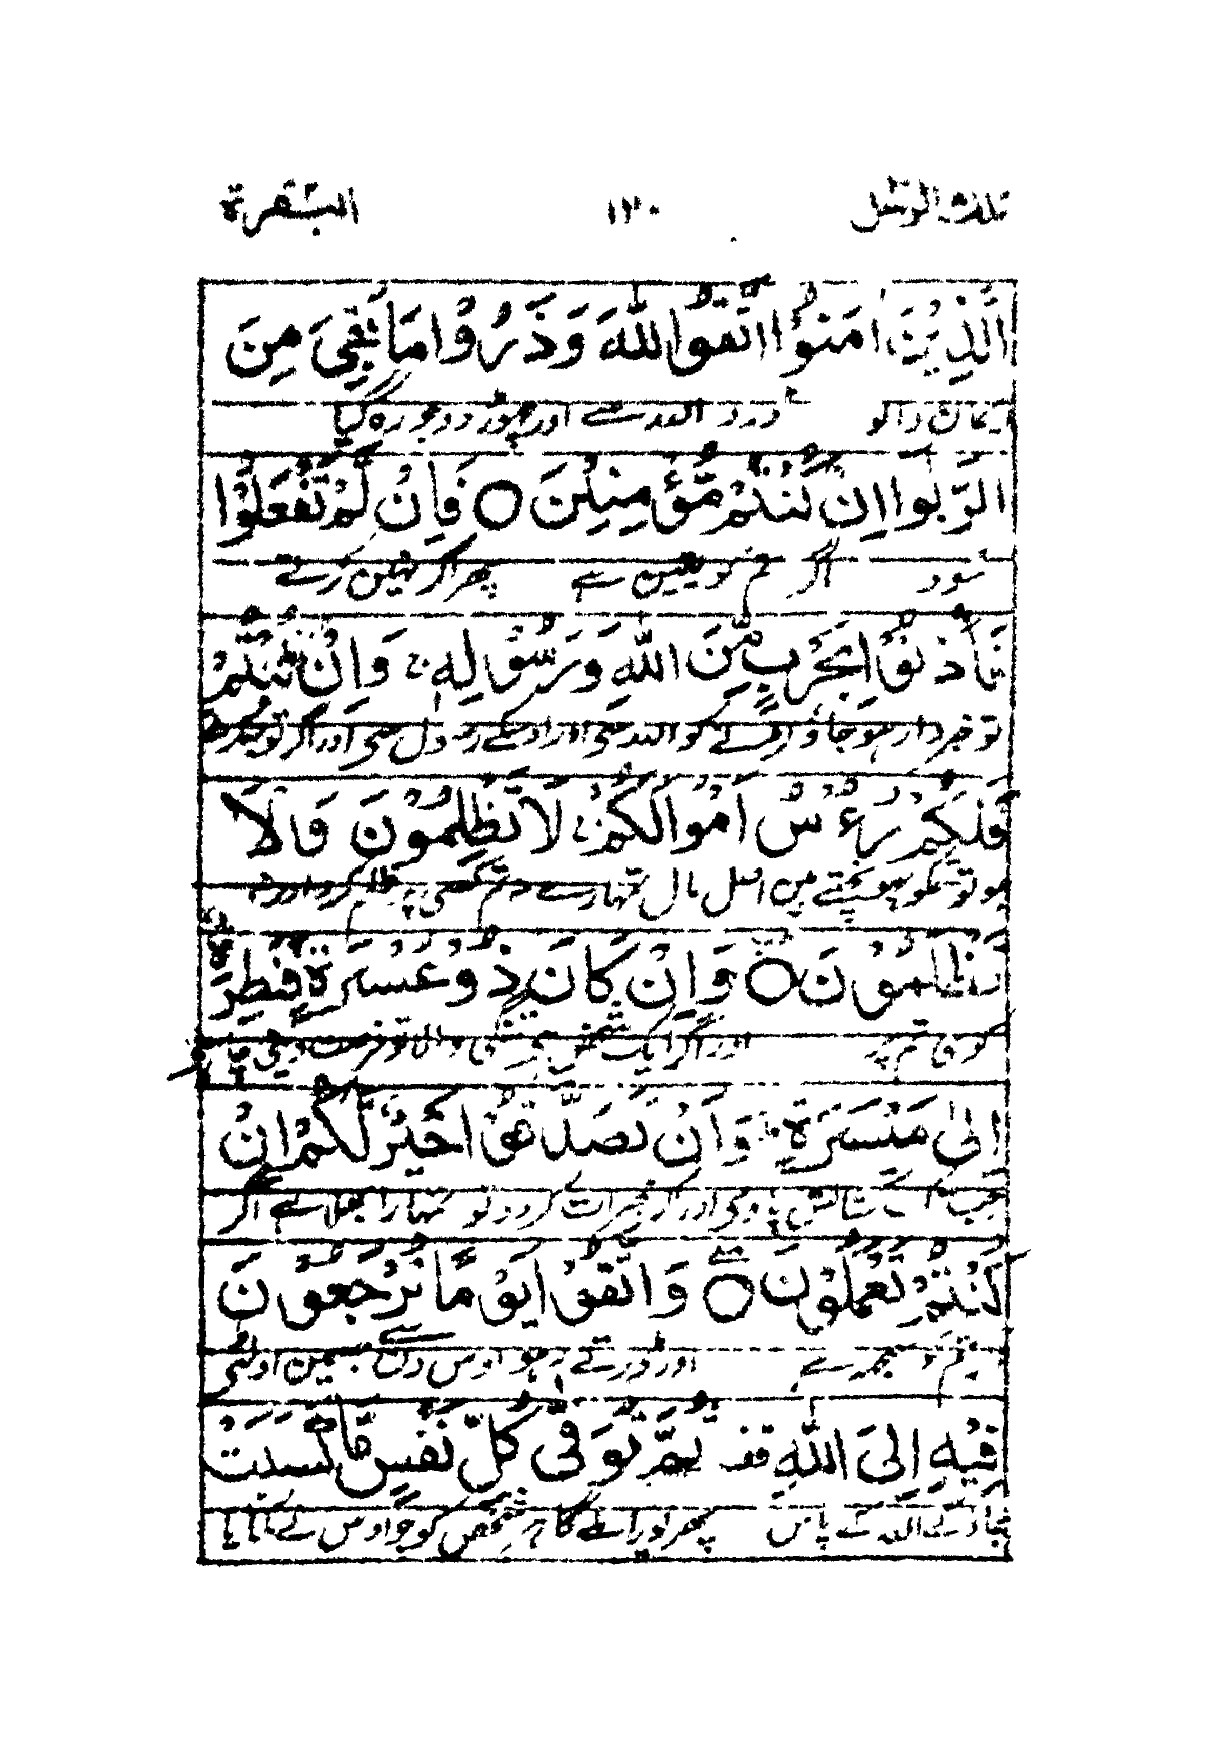 تلك الرسل ١٢٠ البقرة
الَّذِيْنَ اٰمَنُوا اتَّقُوا اللّٰهَ وَذَرُوْا مَا بَقِيَ مِنَ
ایمان والو ڈرو اللہ سے اور چھوڑ دو جو رہ گیا
الرِّبٰوا اِنْ كُنْتُمْ مُّؤْمِنِيْنَ ○ فَاِنْ لَّمْ تَفْعَلُوْا
سود اگر تم کو یقین ہے پھر اگر نہیں کرتے
فَأْذَنُوْا بِحَرْبٍ مِّنَ اللّٰهِ وَرَسُوْلِهٖ ۚ وَاِنْ تُبْتُمْ
تو خبردار ہو جاؤ لڑنے کو اللہ سے اور اوسکے رسول سے اور اگر توبہ کرتے
فَلَكُمْ رُءُوْسُ اَمْوَالِكُمْ ۚ لَا تَظْلِمُوْنَ وَلَا
ہو تو تمکو پہنچتے ہیں اصل مال تمہارے نہ تم کسی پر ظلم کرو اور نہ
تُظْلَمُوْنَ ○ وَاِنْ كَانَ ذُوْ عُسْرَةٍ فَنَظِرَةٌ
کوئی تم پر اور اگر ایک شخص ہے تنگی والا تو فرصت دینی چاہیے
اِلٰى مَيْسَرَةٍ ؕ وَاَنْ تَصَدَّقُوْا خَيْرٌ لَّكُمْ اِنْ
جب تک کشائش پاوے اور اگر خیرات کر دو تو تمہارا بھلا ہے اگر
كُنْتُمْ تَعْلَمُوْنَ ○ وَاتَّقُوْا يَوْمًا تُرْجَعُوْنَ
تم کو سمجھ ہے اور ڈرتے رہو اوس دن سے جسمیں اولٹے
فِيْهِ اِلَى اللّٰهِ قف ثُمَّ تُوَفّٰى كُلُّ نَفْسٍ مَّا كَسَبَتْ
جاؤگے اللہ کے پاس پھر پورا ملے گا ہر شخص کو جو اوس نے کمایا